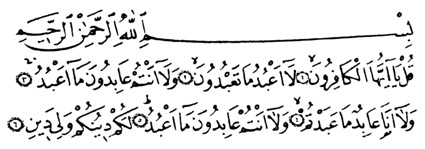 بِسْمِ اللهِ الرَّحْمٰنِ الرَّحِيمِ
قُلْ يَا أَيُّهَا الْكَافِرُونَ ۝١ لَا أَعْبُدُ مَا تَعْبُدُونَ ۝٢ وَلَا أَنْتُمْ عَابِدُونَ مَا أَعْبُدُ ۝٣
وَلَا أَنَا عَابِدٌ مَا عَبَدْتُمْ ۝٤ وَلَا أَنْتُمْ عَابِدُونَ مَا أَعْبُدُ ۝٥ لَكُمْ دِينُكُمْ وَلِيَ دِينِ ۝٦